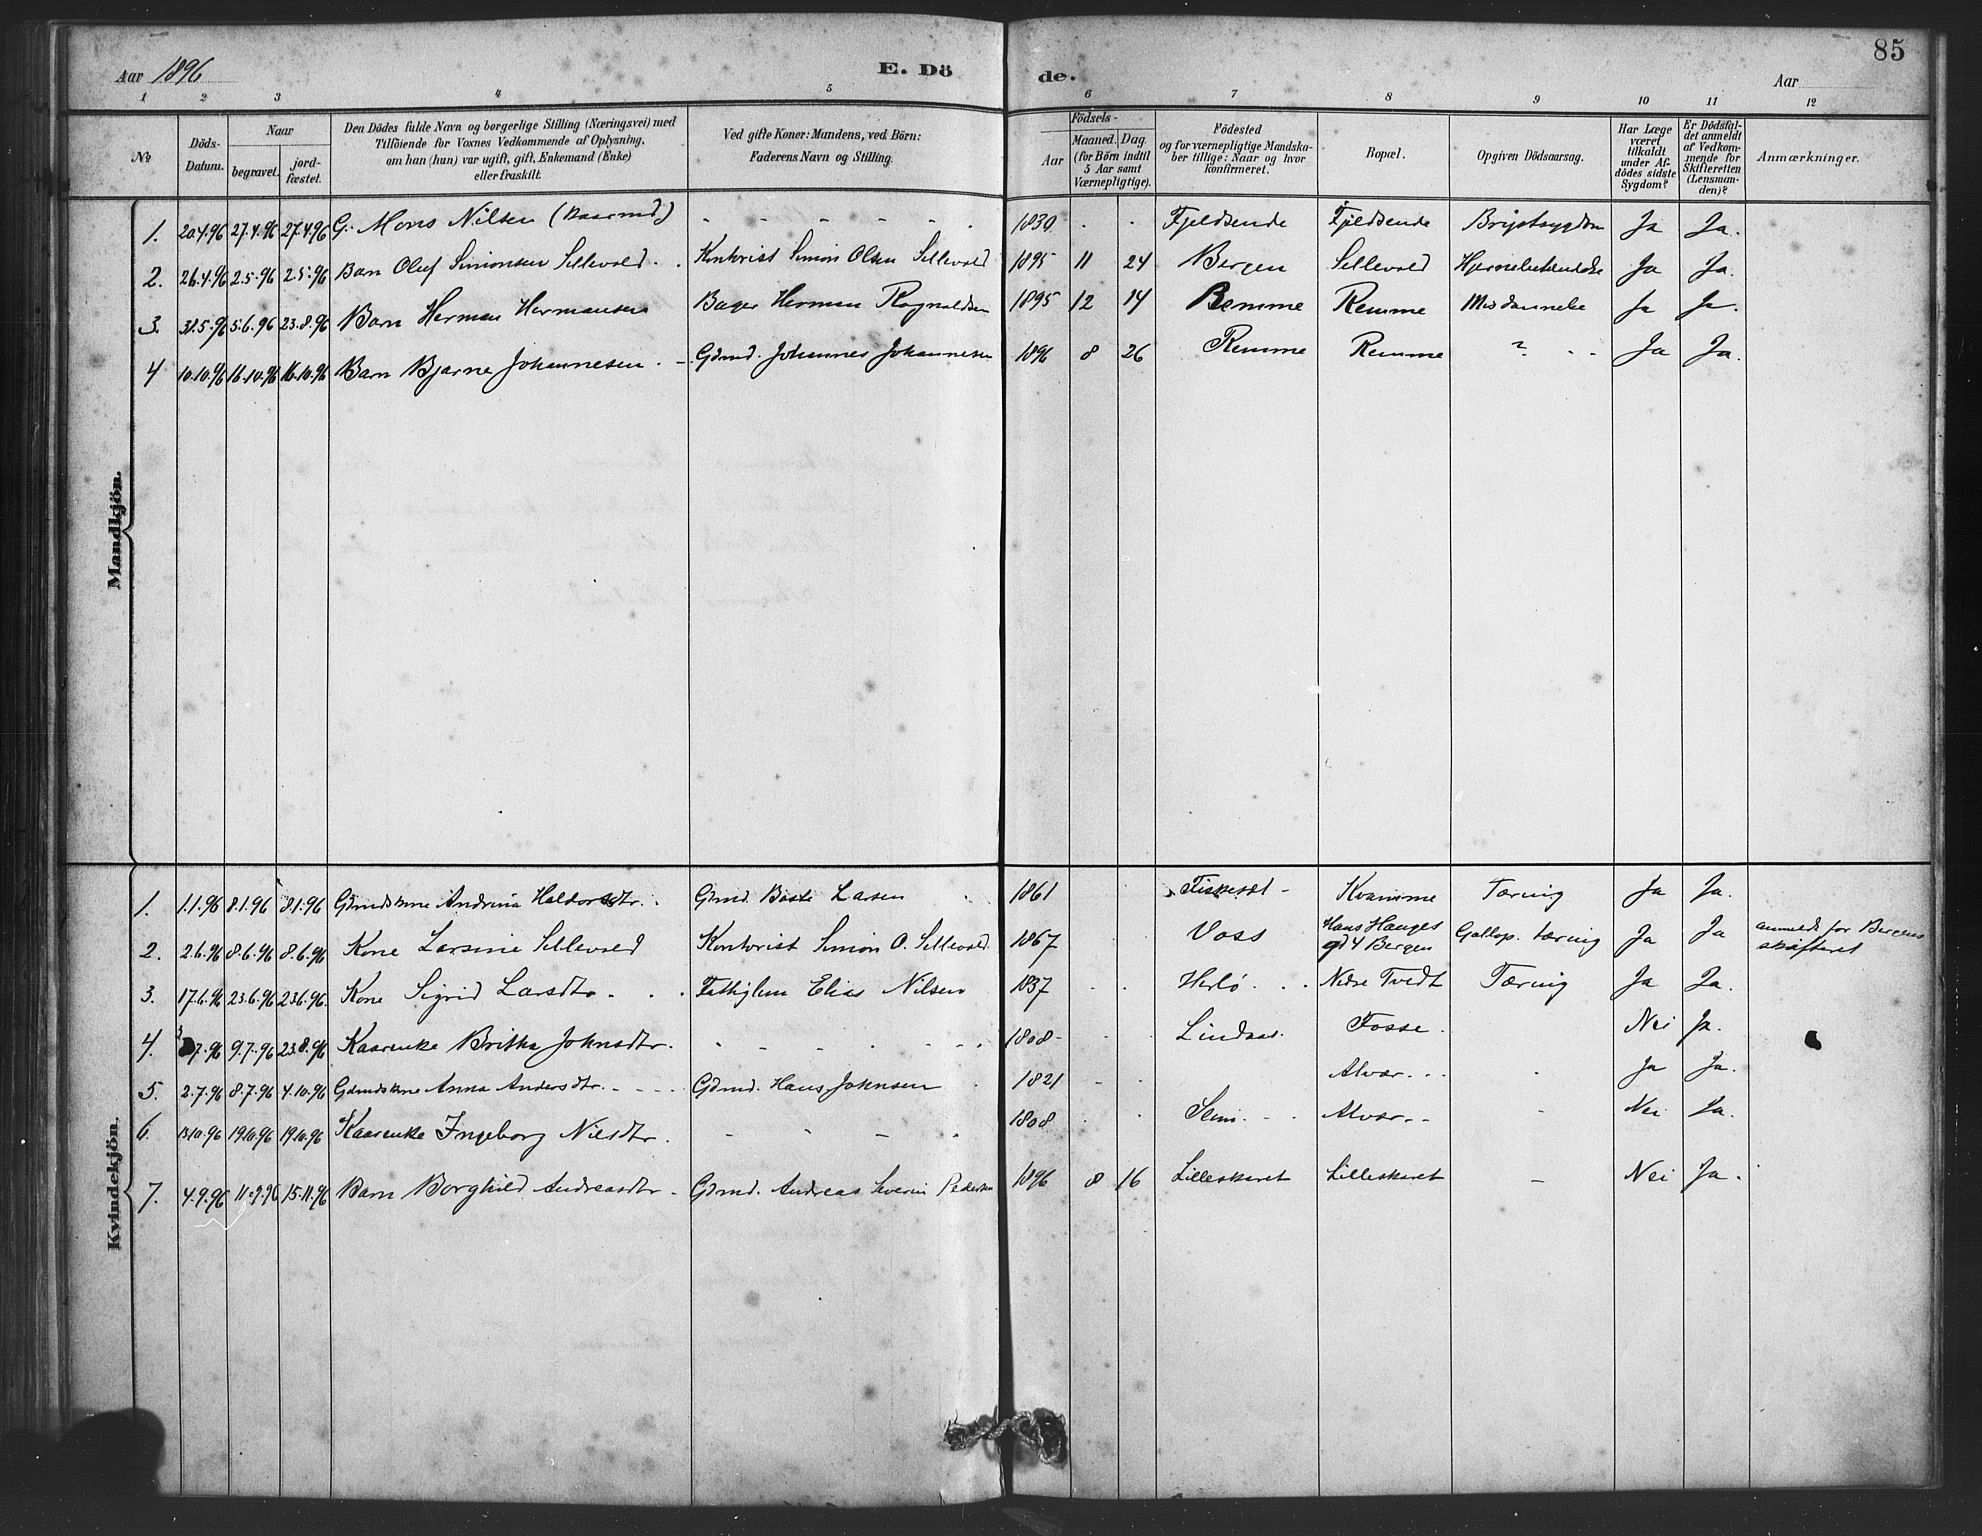 Aar 1896 E. Dö de. Aar 85
1 2 3 4 5 6 7 8 9 10 11 12
№
Döds-Datum.
Naar
begravet. jord-fæstet.
Den Dödes fulde Navn og borgerlige Stilling (Næringsvei) med
Tilföiende for Voxnes Vedkommende af Oplysning,
om han (hun) var ugift, gift, Enkemand (Enke)
eller fraskilt.
Ved gifte Koner: Mandens, ved Börn:
Faderens Navn og Stilling.
Födsels-
Aar Maaned. Dag.
(for Börn indtil
5 Aar samt
Værnepligtige).
Födested
og for værnepligtige Mandska-
ber tillige: Naar og hvor
konfirmeret.
Bopæl.
Opgiven Dödsaarsag.
Har Læge
været
tilkaldt
under Af-
dödes sidste
Sygdom?
Er Dödsfal-
det anmeldt
af Vedkom-
mende for
Skifteretten
(Lensman-
den)?
Anmærkninger.
Mandkjön.
1. 20.4.96 27.4.96 27.4.96 G. Mons Nilsen - - - - - - 1830 - - Fjeldsende Fjeldsende Brystsygdom Ja Ja.
2. 26.4.96 2.5.96 2.5.96 Barn Oluf Simonsen Sellevold. Kontorist Simon Olsen Sellevold 1895 11 24 Bergen Sellevold Ja Ja.
3. 31.5.96 5.6.96 23.8.96 Barn Herman Hermansen Bager Herman Ragnvaldsen 1895 12 14 Remme Remme Misdannelse Ja Ja.
4 10.10.96 16.10.96 16.10.96 Barn Bjarne Johannesen. - Gdmd. Johannes Johannesen 1896 8 26 Remme Remme ? - - Ja Ja.
Kvindekjön.
1. 1.1.96 8.1.96 8.1.96 Gdmdskone Andrina Haldorsdtr. Gdmd. Baste Larsen 1861 Fiskesæt - Kvamme Tæring Ja Ja.
2. 2.6.96 8.6.96 8.6.96 Kone Larsine Sellevold Kontorist Simon O. Sellevold. 1867 Voss Hans Hauges
gd 4 Bergen Gallop. tæring Ja Ja anmeldt for Bergens
skifteret
3. 17.6.96 23.6.96 23.6.96. Kone Sigrid Larsdtr. Fattiglem Elias Nilsen 1837 Herlö. Nedre Tvedt Tæring Ja Ja.
4. 3.7.96 9.7.96 23.8.96 Kaarenke Britha Johnsdtr. - - - - - - 1808- Lindaas. Fosse. Nei Ja.
5. 2.7.96 8.7.96 4.10.96 Gdmdskone Anna Andersdtr. - - - Gdmd. Hans Johnsen 1821 Alvær. - - Ja Ja.
6. 13.10.96 19.10.96 19.10.96 Kaarenke Ingeborg Nilsdtr. - - - - 1808 Seim. - - Alvær. - - - Nei Ja.
7. 4.9.96 11.9.96 15.11.96 Barn Borghild Andreasdtr. - Gdmd. Andreas Severin Pedersen 1896 8 16 Lilleskaret Lilleskaret - Nei Ja.